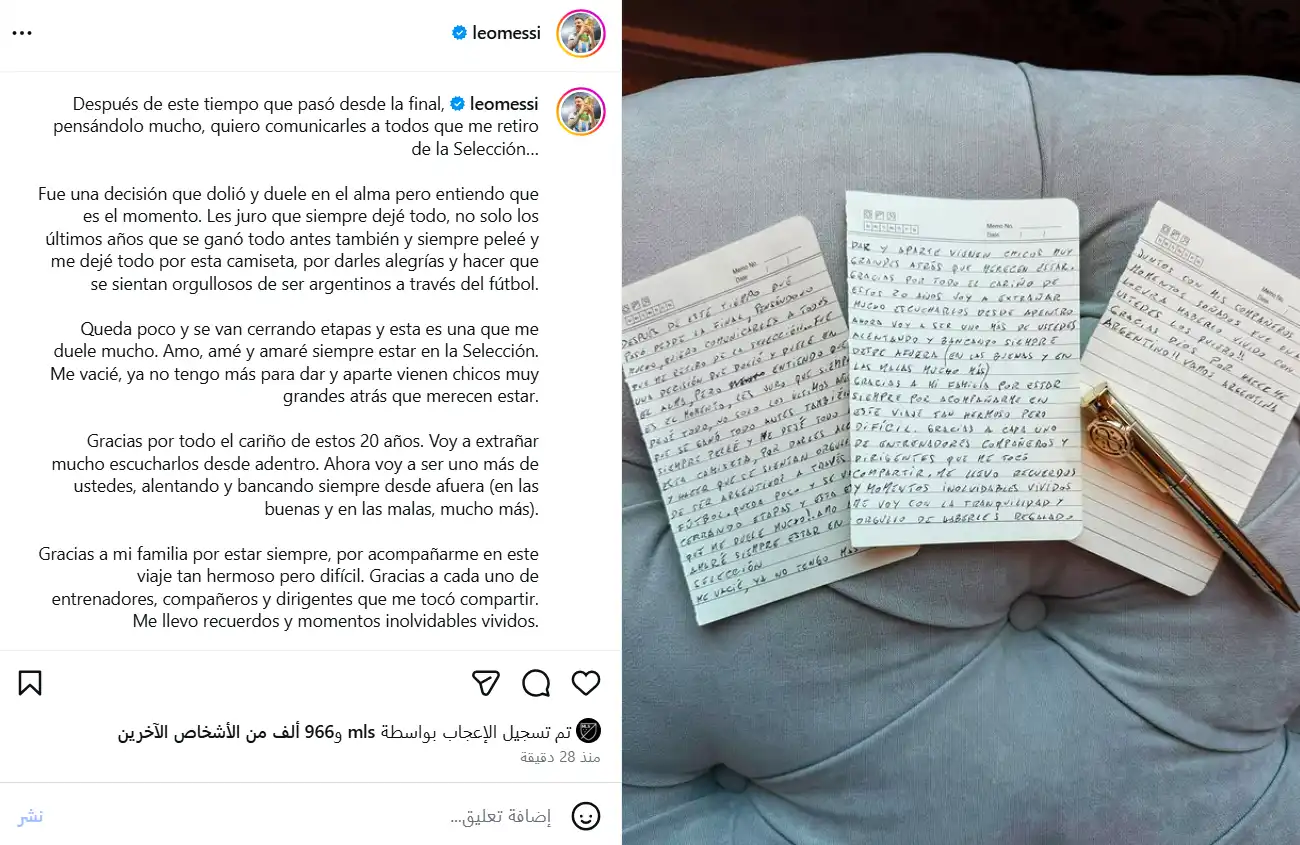 leomessi
leomessi Después de este tiempo que pasó desde la final,
pensándolo mucho, quiero comunicarles a todos que me retiro
de la Selección...
Fue una decisión que dolió y duele en el alma pero entiendo que
es el momento. Les juro que siempre dejé todo, no solo los
últimos años que se ganó todo antes también y siempre peleé y
me dejé todo por esta camiseta, por darles alegrías y hacer que
se sientan orgullosos de ser argentinos a través del fútbol.
Queda poco y se van cerrando etapas y esta es una que me
duele mucho. Amo, amé y amaré siempre estar en la Selección.
Me vacié, ya no tengo más para dar y aparte vienen chicos muy
grandes atrás que merecen estar.
Gracias por todo el cariño de estos 20 años. Voy a extrañar
mucho escucharlos desde adentro. Ahora voy a ser uno más de
ustedes, alentando y bancando siempre desde afuera (en las
buenas y en las malas, mucho más).
Gracias a mi familia por estar siempre, por acompañarme en este
viaje tan hermoso pero difícil. Gracias a cada uno de
entrenadores, compañeros y dirigentes que me tocó compartir.
Me llevo recuerdos y momentos inolvidables vividos.
تم تسجيل الإعجاب بواسطة mls و966 ألف من الأشخاص الآخرين
منذ 28 دقيقة
إضافة تعليق...
نشر
Memo No.
Date / /
DESPUES DE ESTE TIEMPO QUE
PASO DESDE LA FINAL, PENSANDOLO
MUCHO, QUIERO COMUNICARLES A TODOS
QUE ME RETIRO DE LA SELECCION... FUE
UNA DECISIÓN QUE DOLIÓ Y DUELE EN
EL ALMA, PERO ENTIENDO QUE
ES EL MOMENTO, LES JURO QUE SIEMPRE
DEJÉ TODO, NO SOLO LOS ULTIMOS AÑOS
QUE SE GANÓ TODO ANTES TAMBIEN
SIEMPRE PELEÉ Y ME DEJÉ TODO
ESTA CAMISETA, POR DARLES
Y HACER QUE SE SIENTAN
DE SER ARGENTINOS A TRAVÉS
FÚTBOL. QUEDA POCO Y SE
CERRANDO ETAPAS Y ESTA
QUE ME DUELE MUCHO! AMO
AMARÉ SIEMPRE ESTAR EN
SELECCIÓN
ME VACIÉ, YA NO TENGO MAS
Memo No.
Date / /
DAR Y APARTE VIENEN CHICOS MUY
GRANDES ATRÁS QUE MERECEN ESTAR.
GRACIAS POR TODO EL CARIÑO DE
ESTOS 20 AÑOS VOY A EXTRAÑAR
MUCHO ESCUCHARLOS DESDE ADENTRO
AHORA VOY A SER UNO MÁS DE USTEDES
ALENTANDO Y BANCANDO SIEMPRE
DESDE AFUERA (EN LAS BUENAS Y EN
LAS MALAS MUCHO MÁS)
GRACIAS A MI FAMILIA POR ESTAR
SIEMPRE POR ACOMPAÑARME EN
ESTE VIAJE TAN HERMOSO PERO
DIFÍCIL. GRACIAS A CADA UNO
DE ENTRENADORES COMPAÑEROS Y
DIRIGENTES QUE ME TOCÓ
COMPARTIR. ME LLEVO RECUERDOS
Y MOMENTOS INOLVIDABLES VIVIDOS
ME VOY CON LA TRANQUILIDAD Y
ORGULLO DE HABERLES REGALADO
Memo No.
Date
JUNTOS CON MIS COMPAÑEROS
MOMENTOS SOÑADOS
LOCURA HABERLO VIVIDO CON
USTEDES LOS QUIERO!!
GRACIAS DIOS POR HACERME
ARGENTINO!! VAMOS ARGENTINA